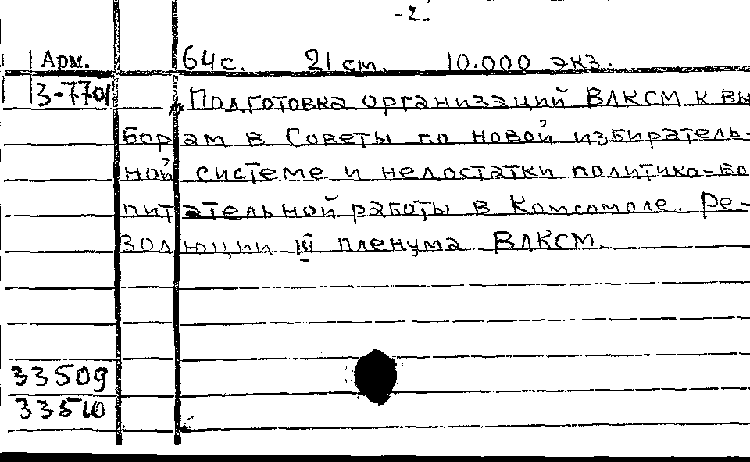 -2-
Арм. 64с. 21 см. 10.000 экз.
3-7701 Подготовка организаций ВЛКСМ к вы
борам в Советы по новой избиратель-
ной системе и недостатки политико-во
питательной работы в Комсомоле. Ре-
золюции III пленума ВЛКСМ.
33509
33510